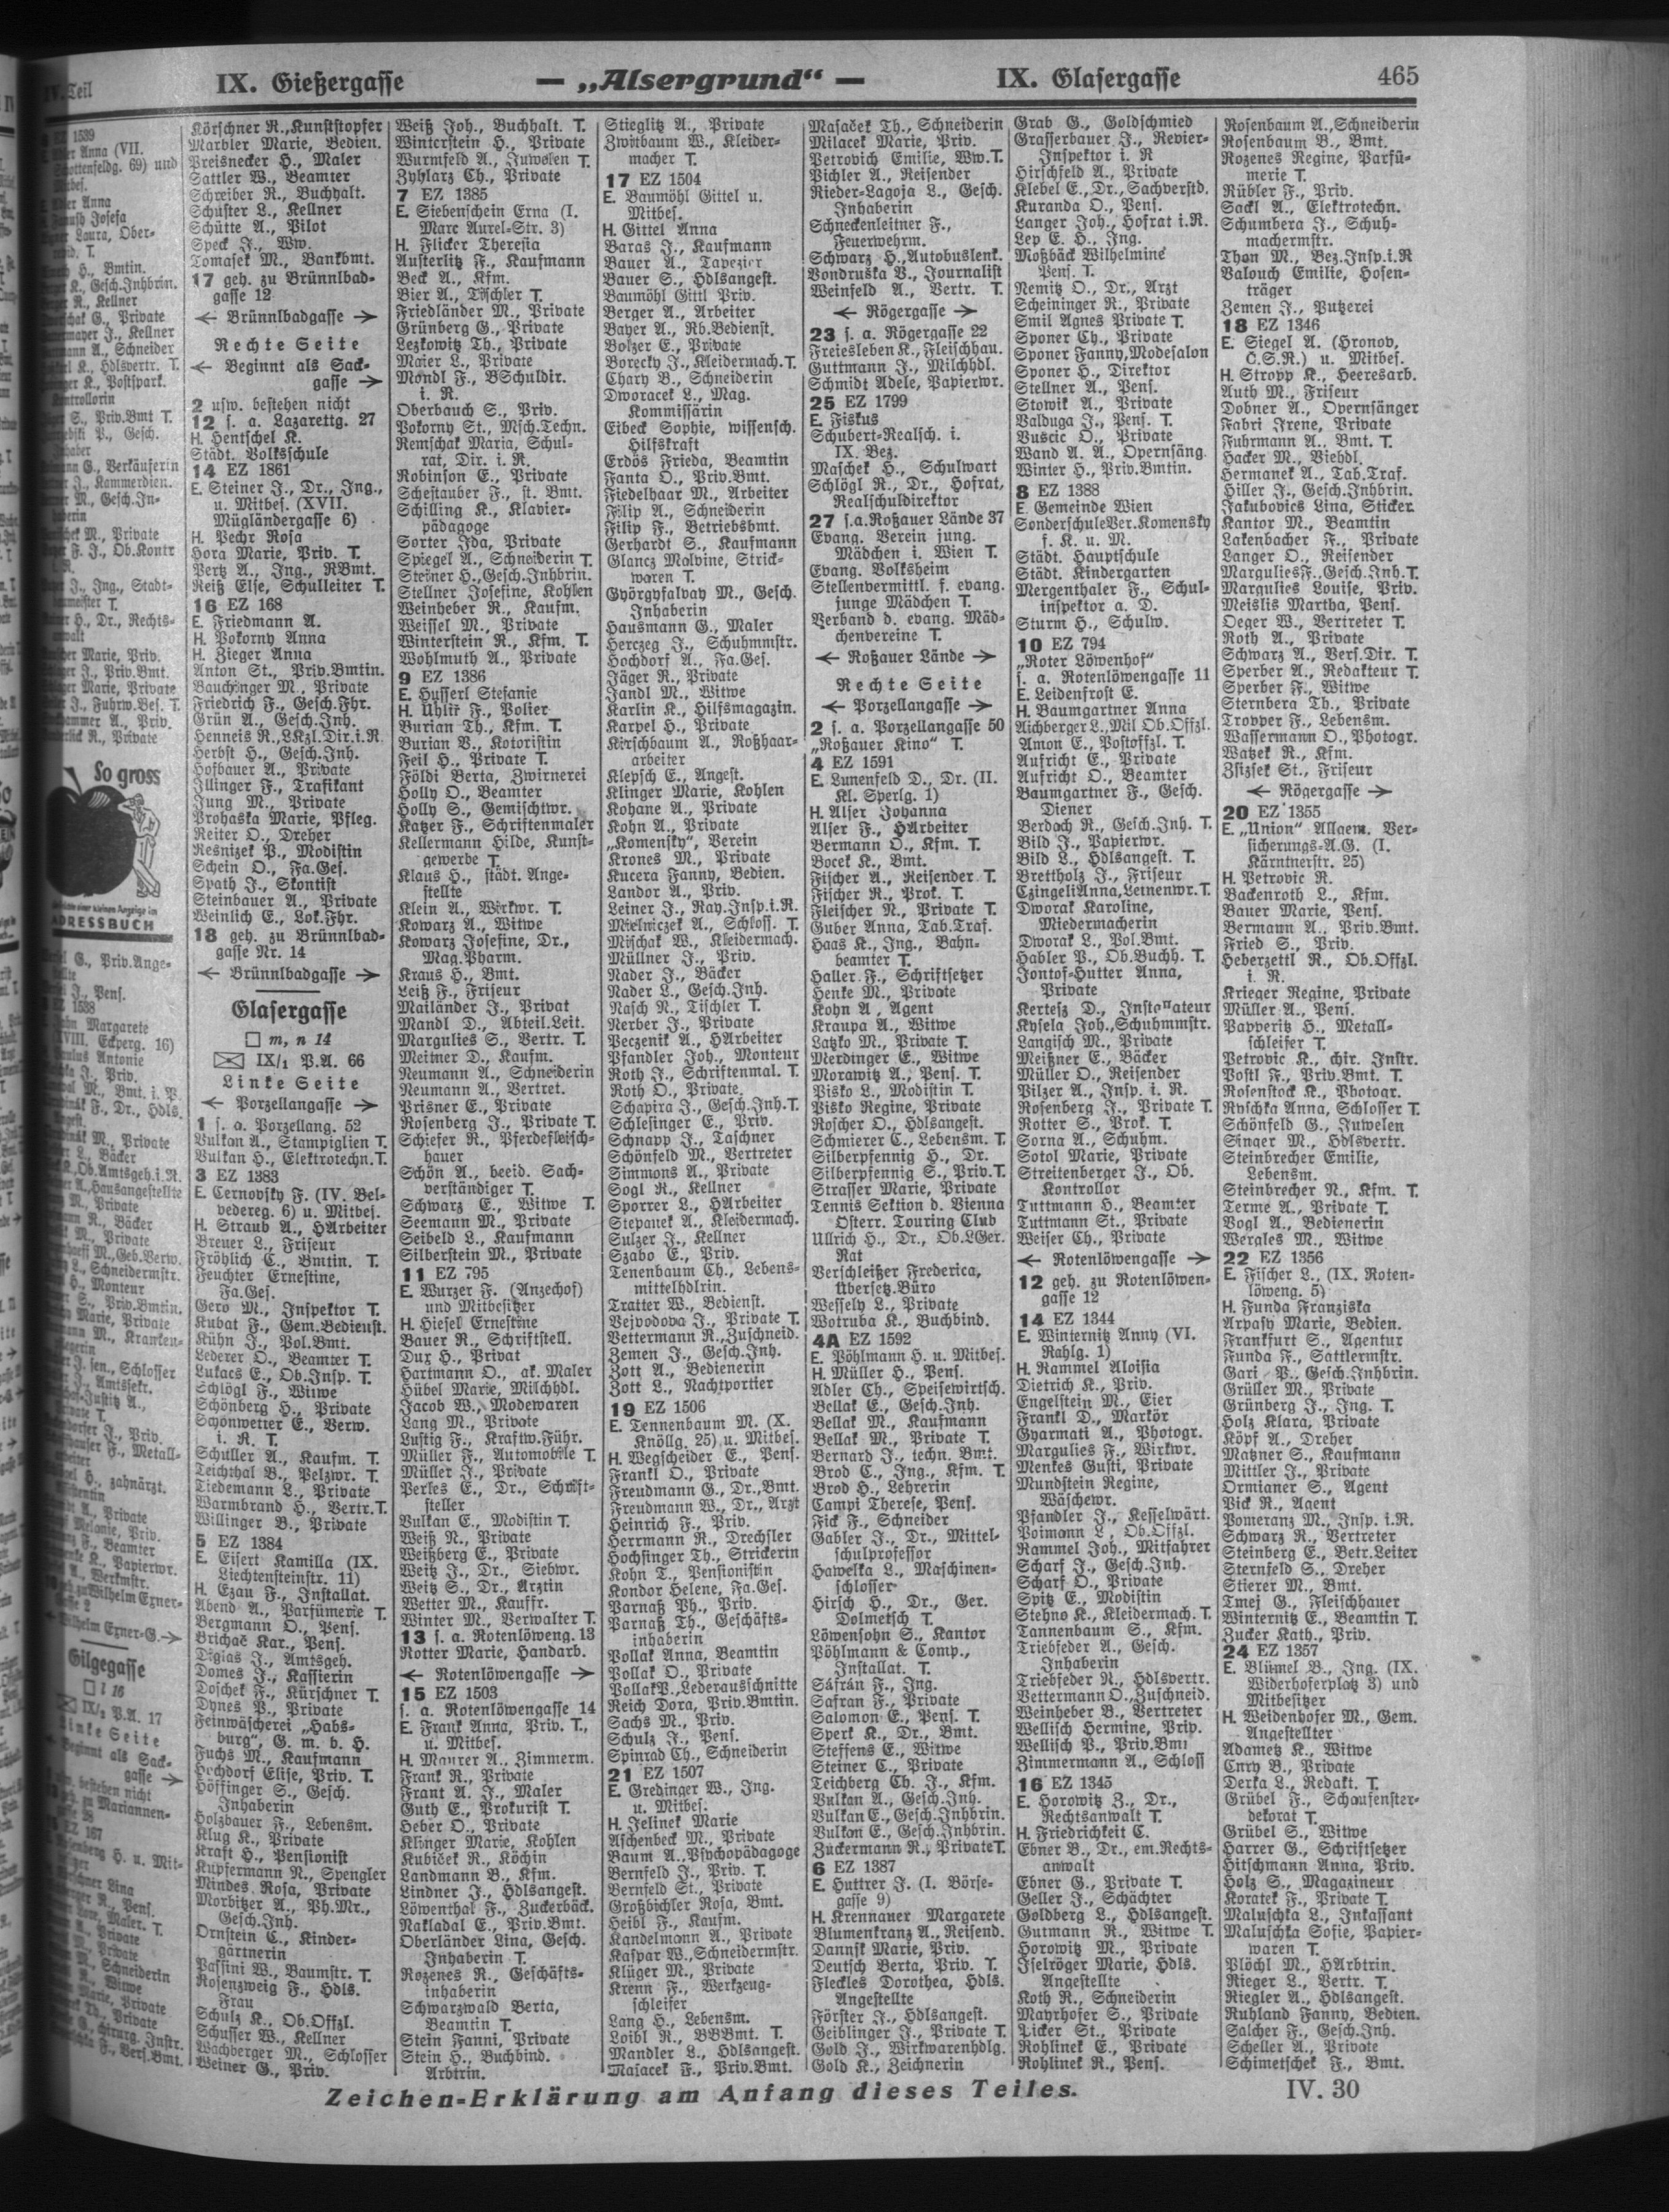 IV. Teil
IX. Gießergasse
— „Alsergrund“ —
IX. Glasergasse
465
Körschner R., Kunststopfer
Marbler Marie, Bedien.
Preisnecker H., Maler
Sattler W., Beamter
Schreiber R., Buchhalt.
Schuster L., Kellner
Schütte A., Pilot
Speck J., Ww.
Tomasek M., Bankbmt.
17 geh. zu Brünnlbad-
gasse 12
← Brünnlbadgasse →
Rechte Seite
← Beginnt als Sack-
gasse →
2 usw. bestehen nicht
12 s. a. Lazarettg. 27
H. Hentschel K.
Städt. Volksschule
14 EZ 1861
E. Steiner J., Dr., Ing.,
u. Mitbes. (XVII.
Mügländergasse 6)
H. Pechr Rosa
Hora Marie, Priv. T.
Pertz A., Ing., RBmt.
Reiß Else, Schulleiter T.
16 EZ 168
E. Friedmann A.
H. Pokorny Anna
H. Zieger Anna
Anton St., Priv.Bmtin.
Bauchinger M., Private
Friedrich F., Gesch.Fhr.
Grün A., Gesch.Inh.
Henneis R., LKzl.Dir.i.R.
Herbst H., Gesch.Inh.
Hofbauer A., Private
Illinger F., Trafikant
Jung M., Private
Prohaska Marie, Pfleg.
Reiter O., Dreher
Resnizek P., Modistin
Schein O., Fa.Ges.
Spath J., Skontist
Steinbauer A., Private
Weinlich E., Lok.Fhr.
18 geh. zu Brünnlbad-
gasse Nr. 14
← Brünnlbadgasse →
Glasergasse
□ m, n 14
IX/1 P.A. 66
Linke Seite
← Porzellangasse →
1 s. a. Porzellang. 52
Vulkan A., Stampiglien T.
Vulkan H., Elektrotechn. T.
3 EZ 1383
E. Cernovsky F. (IV. Bel-
vedereg. 6) u. Mitbes.
H. Straub A., HArbeiter
Breuer L., Friseur
Fröhlich C., Bmtin. T.
Feuchter Ernestine,
Fa.Ges.
Gero M., Inspektor T.
Kubat F., Gem.Bedienst.
Kühn J., Pol.Bmt.
Lederer O., Beamter T.
Lukacs E., Ob.Insp. T.
Schlögl F., Witwe
Schönberg H., Private
Schönwetter E., Verw.
i. R. T.
Schuller A., Kaufm. T.
Teichthal B., Pelzwr. T.
Tiedemann L., Private
Warmbrand H., Vertr. T.
Willinger B., Private
5 EZ 1384
E. Eisert Kamilla (IX.
Liechtensteinstr. 11)
H. Ezau F., Installat.
Abend A., Parfümerie T.
Bergmann O., Pens.
Brichač Kar., Pens.
Digias J., Amtsgeh.
Domes J., Kassierin
Doschek F., Kürschner T.
Dynes P., Private
Feinwäscherei „Habs-
burg“, G. m. b. H.
Fuchs M., Kaufmann
Hochdorf Elise, Priv. T.
Höffinger S., Gesch.
Inhaberin
Holzbauer F., Lebensm.
Klug K., Private
Kraft H., Pensionist
Kupfermann N., Spengler
Mindes Rosa, Private
Morbitzer A., Ph.Mr.,
Gesch.Inh.
Ornstein C., Kinder-
gärtnerin
Passini W., Baumstr. T.
Rosenzweig F., Hdls.
Frau
Schulz K., Ob.Offzl.
Schusser W., Kellner
Wachberger M., Schlosser
Weiner G., Priv.
Weiß Joh., Buchhalt. T.
Winterstein H., Private
Wurmfeld A., Juwelen T.
Zyhlarz Ch., Private
7 EZ 1385
E. Siebenschein Erna (I.
Marc Aurel-Str. 3)
H. Flicker Theresia
Austerlitz F., Kaufmann
Beck A., Kfm.
Bier A., Tischler T.
Friedländer M., Private
Grünberg G., Private
Lezkowitz Th., Private
Maier L., Private
Mondl F., BSchuldir.
i. R.
Oberbauch S., Priv.
Pokorny St., Msch.Techn.
Remschak Maria, Schul-
rat, Dir. i. R.
Robinson E., Private
Schestauber F., st. Bmt.
Schilling K., Klavier-
pädagoge
Sorter Ida, Private
Spiegel A., Schneiderin T.
Steiner H., Gesch.Inhbrin.
Stellner Josefine, Kohlen
Weinheber R., Kaufm.
Weissel M., Private
Winterstein R., Kfm. T.
Wohlmuth A., Private
9 EZ 1386
E. Husserl Stefanie
H. Uhlir F., Polier
Burian Th., Kfm. T.
Burian V., Kotoristin
Feil H., Private T.
Földi Berta, Zwirnerei
Holly O., Beamter
Holly S., Gemischtwr.
Katzer F., Schriftenmaler
Kellermann Hilde, Kunst-
gewerbe T.
Klaus H., städt. Ange-
stellte
Klein A., Wirkwr. T.
Kowarz A., Witwe
Kowarz Josefine, Dr.,
Mag.Pharm.
Kraus H., Bmt.
Leiß F., Friseur
Mailänder J., Privat
Mandl D., Abteil.Leit.
Margulies S., Vertr. T.
Meitner D., Kaufm.
Neumann A., Schneiderin
Neumann A., Vertret.
Prisner E., Private
Rosenberg J., Private T.
Schiefer R., Pferdefleisch-
hauer
Schön A., beeid. Sach-
verständiger T.
Schwarz E., Witwe T.
Seemann M., Private
Seibeld L., Kaufmann
Silberstein M., Private
11 EZ 795
E. Wurzer F. (Anzechof)
und Mitbesitzer
H. Hiesel Ernestine
Bauer R., Schriftstell.
Dux H., Privat
Hartmann O., ak. Maler
Hübel Marie, Milchhdl.
Jacob W., Modewaren
Lang M., Private
Lustig F., Kraftw.Führ.
Müller F., Automobile T.
Müller J., Private
Perles E., Dr., Schrift-
steller
Vulkan E., Modistin T.
Weiß N., Private
Weißberg E., Private
Weitz J., Dr., Siebwr.
Weitz S., Dr., Ärztin
Wetter M., Kauffr.
Winter M., Verwalter T.
13 s. a. Rotenlöweng. 13
Rotter Marie, Handarb.
← Rotenlöwengasse →
15 EZ 1503
s. a. Rotenlöwengasse 14
E. Frank Anna, Priv. T.,
u. Mitbes.
H. Maurer A., Zimmerm.
Frank R., Private
Frant A. J., Maler
Guth E., Prokurist T.
Heber O., Private
Klinger Marie, Kohlen
Kubiček R., Köchin
Landmann B., Kfm.
Lindner J., Hdlsangest.
Löwenthal F., Zuckerbäck.
Nakladal E., Priv.Bmt.
Oberländer Lina, Gesch.
Inhaberin T.
Rozenes R., Geschäfts-
inhaberin
Schwarzwald Berta,
Beamtin T.
Stein Fanni, Private
Stein H., Buchbind.
Arbtrin.
Stieglitz A., Private
Zwirbaum W., Kleider-
macher T.
17 EZ 1504
E. Baumöhl Gittel u.
Mitbes.
H. Gittel Anna
Baras J., Kaufmann
Bauer A., Tapezier
Bauer S., Hdlsangest.
Baumöhl Gittl Priv.
Berger A., Arbeiter
Bayer A., Rb.Bedienst.
Bolzer E., Private
Borecky J., Kleidermach. T.
Chary B., Schneiderin
Dworacek L., Mag.
Kommissärin
Eibeck Sophie, wissensch.
Hilfskraft
Erdös Frieda, Beamtin
Fanta O., Priv.Bmt.
Fiedelhaar M., Arbeiter
Filip A., Schneiderin
Filip F., Betriebsbmt.
Gerhardt S., Kaufmann
Glancz Malvine, Strick-
waren T.
Györgyfalvay M., Gesch.
Inhaberin
Hausmann G., Maler
Herczeg J., Schuhmmstr.
Hochdorf A., Fa.Ges.
Jäger R., Private
Jandl M., Witwe
Karlin K., Hilfsmagazin.
Karpel H., Private
Kirschbaum A., Roßhaar-
arbeiter
Klepsch E., Angest.
Klinger Marie, Kohlen
Kohane A., Private
Kohn A., Private
„Komensky“, Verein
Krones M., Private
Kucera Fanny, Bedien.
Landor A., Priv.
Leiner J., Ray.Insp.i.R.
Mielniczek A., Schloss. T.
Mischak W., Kleidermach.
Müllner J., Priv.
Nader J., Bäcker
Nader L., Gesch.Inh.
Nasch N., Tischler T.
Nerber J., Private
Peczenik A., HArbeiter
Pfandler Joh., Monteur
Roth J., Schriftenmal. T.
Roth O., Private
Schapira J., Gesch.Inh. T.
Schlesinger E., Priv.
Schnapp J., Taschner
Schönfeld M., Vertreter
Simmons A., Private
Sogl R., Kellner
Sporrer L., HArbeiter
Stepanek A., Kleidermach.
Sulzer J., Kellner
Szabo E., Priv.
Tenenbaum Ch., Lebens-
mittelhdlrin.
Tratter W., Bedienst.
Vejvodova J., Private T.
Vettermann R., Zuschneid.
Zemen J., Gesch.Inh.
Zott A., Bedienerin
Zott L., Nachtportier
19 EZ 1506
E. Tennenbaum M. (X.
Knöllg. 25) u. Mitbes.
H. Wegscheider E., Pens.
Frankl O., Private
Freudmann G., Dr., Bmt.
Freudmann W., Dr., Arzt
Heinrich F., Priv.
Herrmann R., Drechsler
Hochsinger Th., Strickerin
Kohn T., Pensionistin
Kondor Helene, Fa.Ges.
Parnaß Ph., Priv.
Parnaß Th., Geschäfts-
inhaberin
Pollak Anna, Beamtin
Pollak O., Private
Pollak P., Lederausschnitte
Reich Dora, Priv.Bmtin.
Sachs M., Priv.
Schulz J., Pens.
Spinrad Ch., Schneiderin
21 EZ 1507
E. Gredinger W., Ing.
u. Mitbes.
H. Jelinek Marie
Aschenbeck M., Private
Baum A., Psychopädagoge
Bernfeld J., Priv. T.
Bernfeld St., Private
Großbichler Rosa, Bmt.
Heibl F., Kaufm.
Kandelmann A., Private
Kaspar W., Schneidermstr.
Klüger M., Private
Krenn F., Werkzeug-
schleifer
Lang H., Lebensm.
Loibl R., BBBmt. T.
Mandler L., Hdlsangest.
Masacek F., Priv.Bmt.
Masaček Th., Schneiderin
Milacek Marie, Priv.
Petrovich Emilie, Ww. T.
Pichler A., Reisender
Rieder-Lagoja L., Gesch.
Inhaberin
Schneckenleitner F.,
Feuerwehrm.
Schwarz H., Autobuslenk.
Vondruška V., Journalist
Weinfeld A., Vertr. T.
← Rögergasse →
23 s. a. Rögergasse 22
Freiesleben K., Fleischhau.
Guttmann J., Milchhdl.
Schmidt Adele, Papierwr.
25 EZ 1799
E. Fiskus
Schubert-Realsch. i.
IX. Bez.
Maschek H., Schulwart
Schlögl R., Dr., Hofrat,
Realschuldirektor
27 s.a. Roßauer Lände 37
Evang. Verein jung.
Mädchen i. Wien T.
Evang. Volksheim
Stellenvermittl. f. evang.
junge Mädchen T.
Verband d. evang. Mäd-
chenvereine T.
← Roßauer Lände →
Rechte Seite
← Porzellangasse →
2 s. a. Porzellangasse 50
„Roßauer Kino“ T.
4 EZ 1591
E. Lunenfeld D., Dr. (II.
Kl. Sperlg. 1)
H. Alser Johanna
Alser F., HArbeiter
Bermann O., Kfm. T.
Bocek K., Bmt.
Fischer A., Reisender T.
Fischer R., Prok. T.
Fleischer N., Private T.
Guber Anna, Tab.Traf.
Haas K., Ing., Bahn-
beamter T.
Haller F., Schriftsetzer
Henke M., Private
Kohn A., Agent
Kraupa A., Witwe
Latzko M., Private T.
Merdinger E., Witwe
Morawitz A., Pens. T.
Pisko L., Modistin T.
Pisko Regine, Private
Roscher O., Hdlsangest.
Schmierer C., Lebensm. T.
Silberpfennig H., Dr.
Silberpfennig S., Priv. T.
Strasser Marie, Private
Tennis Sektion d. Vienna
Österr. Touring Club
Ullrich H., Dr., Ob.LGer.
Rat
Verschleißer Frederica,
Übersetz.Büro
Wessely L., Private
Wotruba K., Buchbind.
4A EZ 1592
E. Pöhlmann H. u. Mitbes.
H. Müller H., Pens.
Adler Ch., Speisewirtsch.
Bellak E., Gesch.Inh.
Bellak M., Kaufmann
Bellak M., Private T.
Bernard J., techn. Bmt.
Brod C., Ing., Kfm. T.
Brod H., Lehrerin
Campi Therese, Pens.
Fick F., Schneider
Gabler J., Dr., Mittel-
schulprofessor
Hawelka L., Maschinen-
schlosser
Hirsch H., Dr., Ger.
Dolmetsch T.
Löwensohn S., Kantor
Pöhlmann & Comp.,
Installat. T.
Sáfrán F., Ing.
Safran F., Private
Salomon E., Pens. T.
Sperk K., Dr., Bmt.
Steffens E., Witwe
Steiner C., Private
Teichberg Ch. J., Kfm.
Vulkan A., Gesch.Inh.
Vulkan E., Gesch.Inhbrin.
Vulkan E., Gesch.Inhbrin.
Zuckermann R., Private T.
6 EZ 1387
E. Huttrer J. (I. Börse-
gasse 9)
H. Krennauer Margarete
Blumenkranz A., Reisend.
Dannsk Marie, Priv.
Deutsch Berta, Priv. T.
Fleckles Dorothea, Hdls.
Angestellte
Förster J., Hdlsangest.
Geiblinger J., Private T.
Gold J., Wirkwarenhdlg.
Gold K., Zeichnerin
Grab G., Goldschmied
Grasserbauer J., Revier-
Inspektor i. R
Hirschfeld A., Private
Klebel E., Dr., Sachverstd.
Kuranda O., Pens.
Langer Joh., Hofrat i.R.
Lep E. H., Ing.
Moßbäck Wilhelmine
Pens. T.
Nemitz O., Dr., Arzt
Scheininger R., Private
Smil Agnes Private T.
Sponer Ch., Private
Sponer Fanny, Modesalon
Sponer H., Direktor
Stellner A., Pens.
Stowik A., Private
Valduga J., Pens. T.
Vuscic O., Private
Wand A. A., Opernsäng.
Winter H., Priv.Bmtin.
8 EZ 1388
E. Gemeinde Wien
SonderschuleVer.Komensky
f. K. u. M.
Städt. Hauptschule
Städt. Kindergarten
Mergenthaler F., Schul-
inspektor a. D.
Sturm H., Schulw.
10 EZ 794
„Roter Löwenhof“
s. a. Rotenlöwengasse 11
E. Leidenfrost E.
H. Baumgartner Anna
Aichberger L., Mil Ob.Offzl.
Amon E., Postoffzl. T.
Aufricht E., Private
Aufricht O., Beamter
Baumgartner F., Gesch.
Diener
Berdach R., Gesch.Inh. T.
Bild J., Papierwr.
Bild L., Hdlsangest. T.
Brettholz J., Friseur
Czingeli Anna, Leinenwr. T.
Dworak Karoline,
Miedermacherin
Dworak L., Pol.Bmt.
Habler P., Ob.Buchh. T.
Jontof-Hutter Anna,
Private
Kertesz D., Installateur
Kysela Joh., Schuhmmstr.
Langisch M., Private
Meißner E., Bäcker
Müller O., Reisender
Pilzer A., Insp. i. R.
Rosenberg J., Private T.
Rotter S., Prok. T.
Sorna A., Schuhm.
Sotol Marie, Private
Streitenberger J., Ob.
Kontrollor
Tuttmann H., Beamter
Tuttmann St., Private
Weiser Ch., Private
← Rotenlöwengasse →
12 geh. zu Rotenlöwen-
gasse 12
14 EZ 1344
E. Winternitz Anny (VI.
Rahlg. 1)
H. Rammel Aloisia
Dietrich K., Priv.
Engelstein M., Eier
Frankl D., Markör
Gyarmati A., Photogr.
Margulies F., Wirkwr.
Menkes Gusti, Private
Mundstein Regine,
Wäschewr.
Pfandler J., Kesselwärt.
Poimann L., Ob.Offzl.
Rammel Joh., Mitfahrer
Scharf J., Gesch.Inh.
Scharf O., Private
Spitz E., Modistin
Stehno K., Kleidermach. T.
Tannenbaum S., Kfm.
Triebfeder A., Gesch.
Inhaberin
Triebfeder N., Hdlsvertr.
Vettermann O., Zuschneid.
Weinheber B., Vertreter
Wellisch Hermine, Priv.
Wellisch P., Priv.Bmt
Zimmermann A., Schloss
16 EZ 1345
E. Horowitz Z., Dr.,
Rechtsanwalt T.
H. Friedrichkeit C.
Ebner B., Dr., em.Rechts-
anwalt
Ebner G., Private T.
Geller J., Schächter
Goldberg L., Hdlsangest.
Gutmann R., Witwe T.
Horowitz M., Private
Iselröger Marie, Hdls.
Angestellte
Koth R., Schneiderin
Mayrhofer S., Private
Picker St., Private
Rohlinek E., Private
Rohlinek R., Pens.
Rosenbaum A., Schneiderin
Rosenbaum B., Bmt.
Rozenes Regine, Parfü-
merie T.
Rübler F., Priv.
Sackl A., Elektrotechn.
Schumbera J., Schuh-
machermstr.
Thon M., Bez.Insp.i.R
Valouch Emilie, Hosen-
träger
Zemen J., Putzerei
18 EZ 1346
E. Siegel A. (Hronov,
Č.S.R.) u. Mitbes.
H. Stropp K., Heeresarb.
Auth M., Friseur
Dobner A., Opernsänger
Fabri Irene, Private
Fuhrmann A., Bmt. T.
Hacker M., Viehdl.
Hermanek A., Tab.Traf.
Hiller J., Gesch.Inhbrin.
Jakubovics Lina, Sticker.
Kantor M., Beamtin
Lakenbacher F., Private
Langer O., Reisender
Margulies F., Gesch.Inh. T.
Margulies Louise, Priv.
Meislis Martha, Pens.
Oeger W., Vertreter T.
Roth A., Private
Schwarz A., Vers.Dir. T.
Sperber A., Redakteur T.
Sperber F., Witwe
Sternbera Th., Private
Tropper F., Lebensm.
Wassermann O., Photogr.
Watzek R., Kfm.
Zsizsek St., Friseur
← Rögergasse →
20 EZ 1355
E. „Union“ Allgem. Ver-
sicherungs-A.G. (I.
Kärntnerstr. 25)
H. Petrovic R.
Backenroth L., Kfm.
Bauer Marie, Pens.
Bermann A., Priv.Bmt.
Fried S., Priv.
Heberzettl R., Ob.Offzl.
i. R.
Krieger Regine, Private
Müller A., Pens.
Papperitz H., Metall-
schleifer T.
Petrovic K., chir. Instr.
Postl F., Priv.Bmt. T.
Rosenstock K., Photogr.
Ryschka Anna, Schlosser T.
Schönfeld G., Juwelen
Singer M., Hdlsvertr.
Steinbrecher Emilie,
Lebensm.
Steinbrecher N., Kfm. T.
Terme A., Private T.
Vogl A., Bedienerin
Wergles M., Witwe
22 EZ 1356
E. Fischer L., (IX. Roten-
löweng. 5)
H. Funda Franziska
Arpasy Marie, Bedien.
Frankfurt S., Agentur
Funda F., Sattlermstr.
Gari P., Gesch.Inhbrin.
Grüller M., Private
Grünberg J., Ing. T.
Holz Klara, Private
Köpf A., Dreher
Matzner S., Kaufmann
Mittler J., Private
Ormianer S., Agent
Pick R., Agent
Pomeranz M., Insp. i.R.
Schwarz R., Vertreter
Steinberg E., Betr.Leiter
Sternfeld S., Dreher
Stierer M., Bmt.
Tmej G., Fleischhauer
Winternitz E., Beamtin T.
Zucker Kath., Priv.
24 EZ 1357
E. Blümel B., Ing. (IX.
Widerhoferplatz 3) und
Mitbesitzer
H. Weidenhofer M., Gem.
Angestellter
Adametz K., Witwe
Cnry B., Private
Derka L., Redakt. T.
Grübel F., Schaufenster-
dekorat T.
Grübel S., Witwe
Harrer G., Schriftsetzer
Hitschmann Anna, Priv.
Holz S., Magazineur
Koratek F., Private T.
Maluschka L., Inkassant
Maluschka Sofie, Papier-
waren T.
Plöchl M., HArbtrin.
Rieger L., Vertr. T.
Riegler A., Hdlsangest.
Ruhland Fanny, Bedien.
Salcher F., Gesch.Inh.
Scheller A., Private
Schimetschek F., Bmt.
So gross
ADRESSBUCH
Gilgegasse
Zeichen-Erklärung am Anfang dieses Teiles.
IV. 30